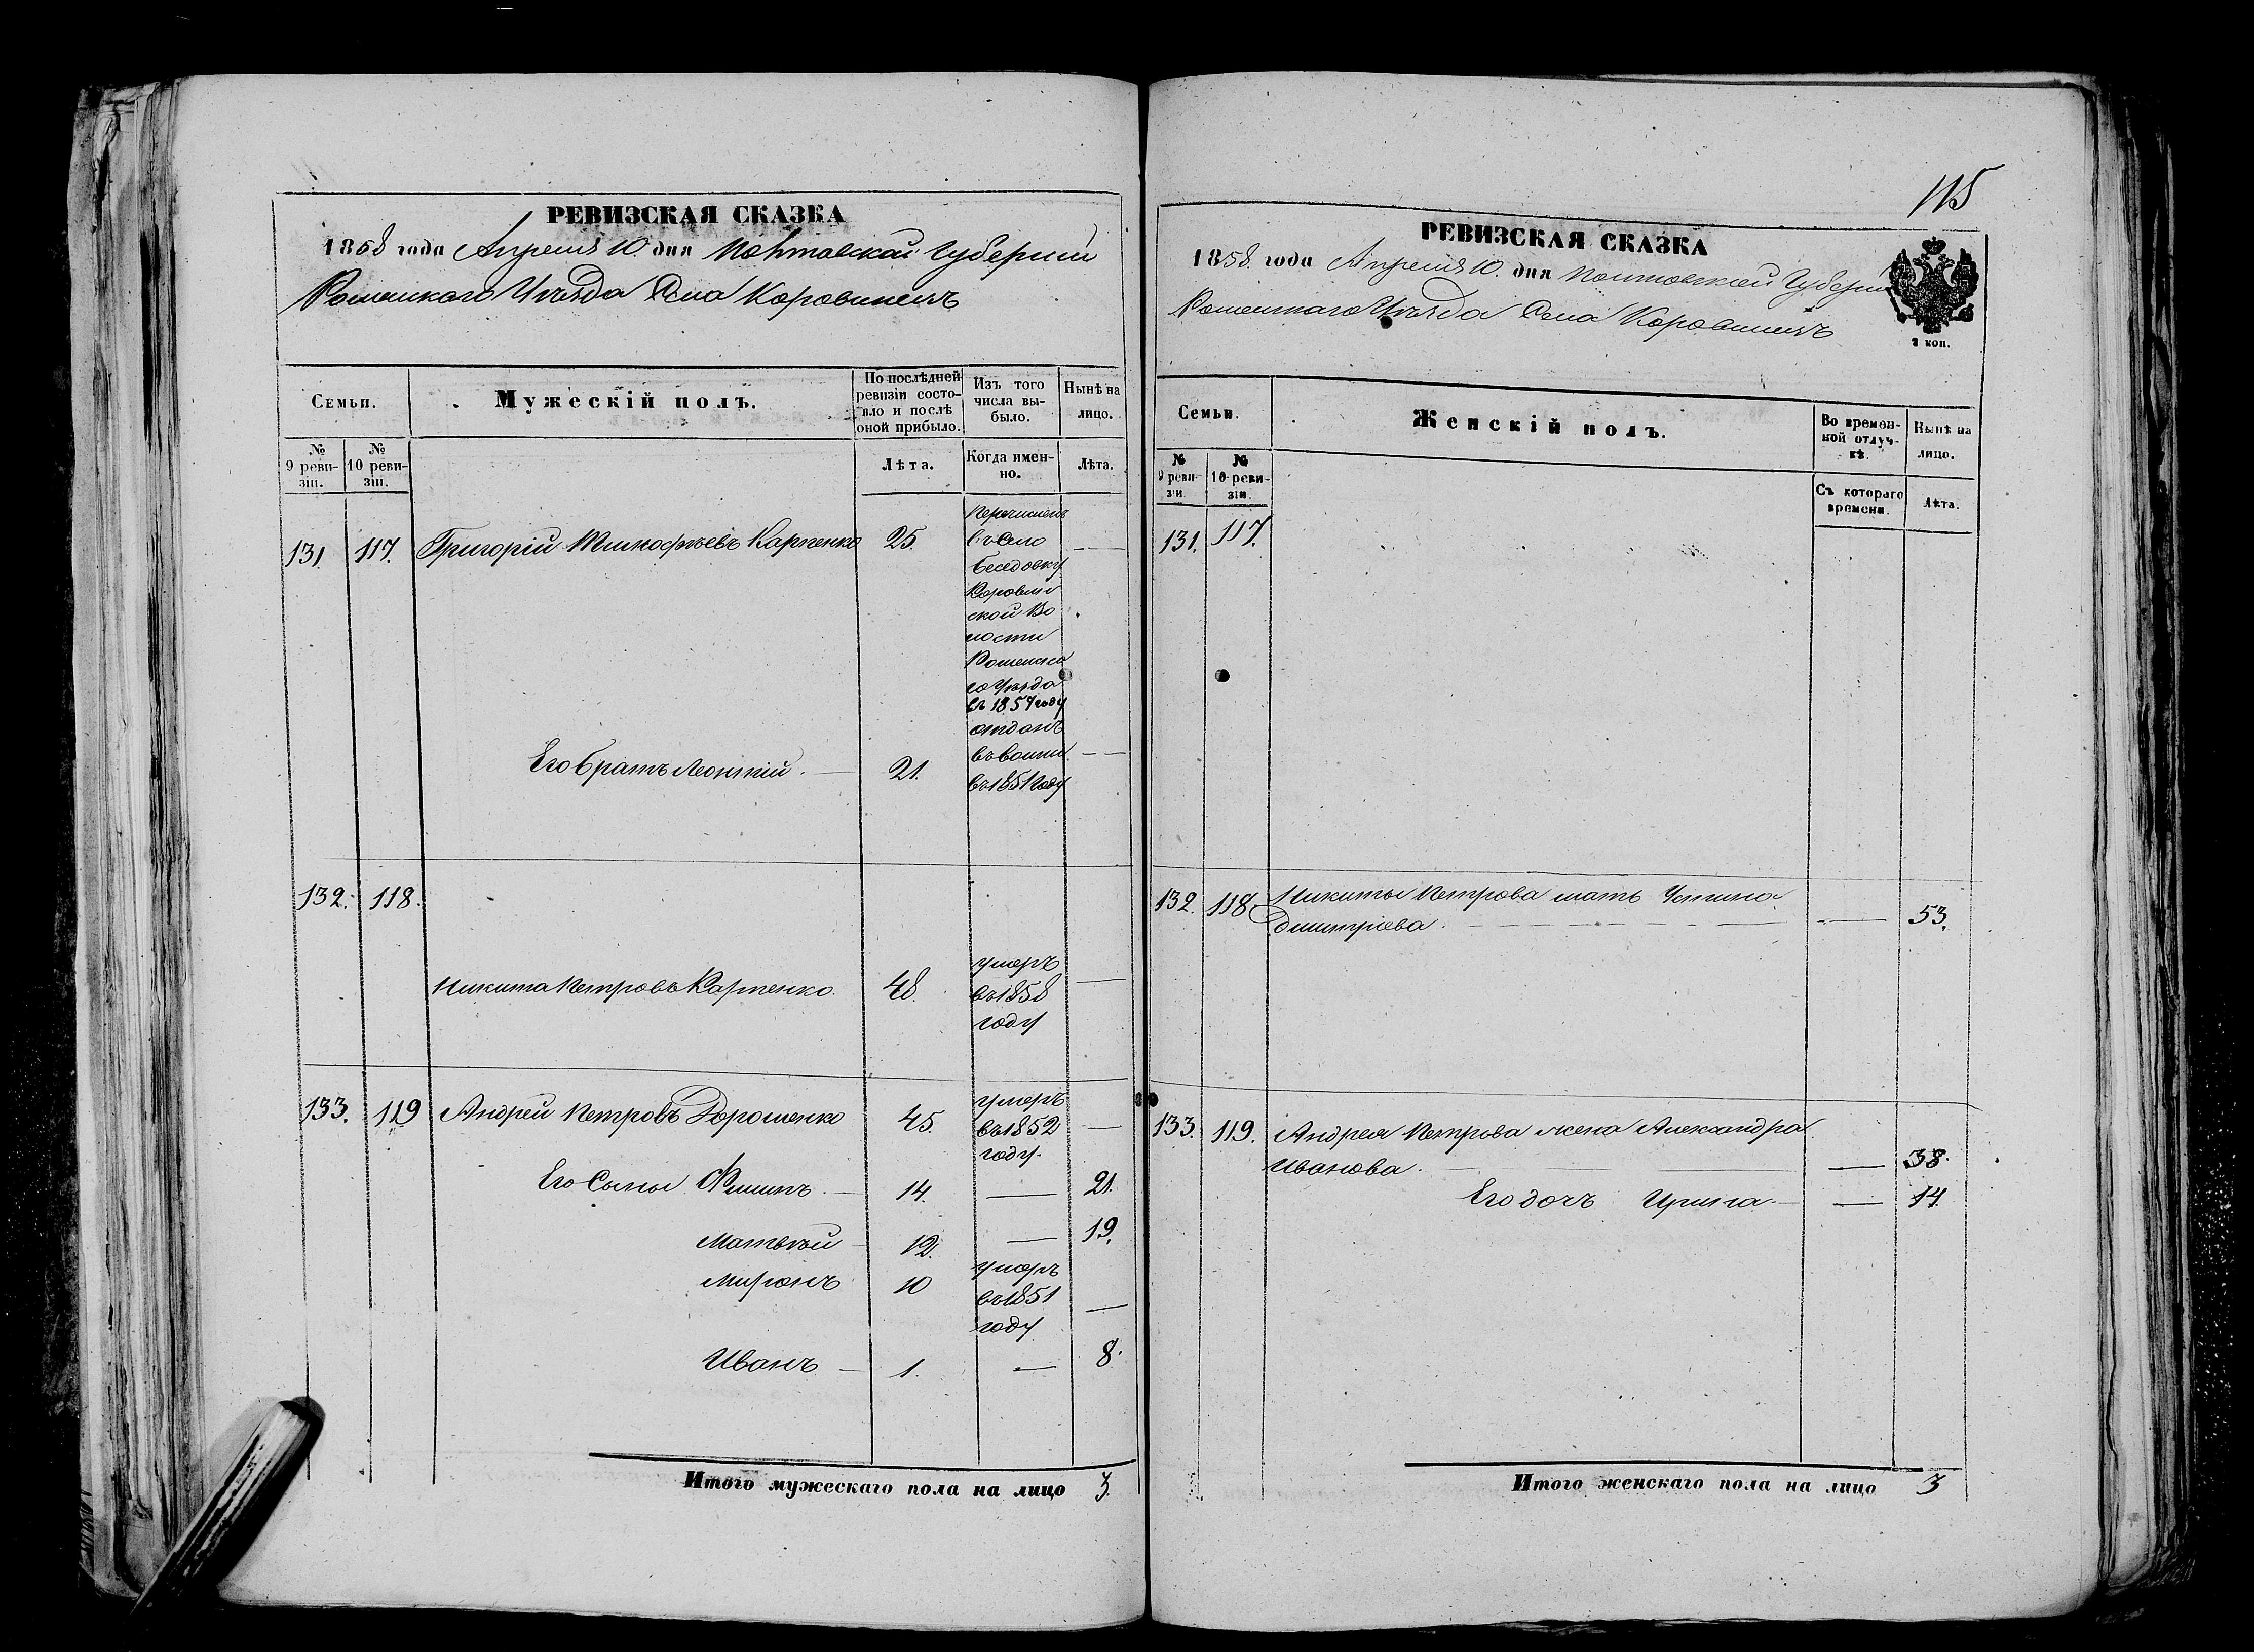 РЕВИЗСКАЯ СКАЗКА
1858 года Апреля 10. дня Полтавской Губернии
Роменскаго Уѣзда Села Коровинецъ
Семьи.
Мужескій полъ.
По послѣдней
ревизіи состо-
яло и послѣ
оной прибыло.
Изъ того
числа вы-
было.
Нынѣ на
лицо.
№
9 реви-
зіи.
№
10 реви-
зіи.
Лѣта.
Когда имен-
но.
Лѣта.
131. 117. Григорій Тимофѣевъ Карпенко 25.
Перечисленъ
въ село
Беседовку
Коровин
ской Во
лости
Роменска
го Уѣзда
въ 1857 году
Его братъ Леонтій. 21.
отданъ
въ воины
въ 1851 году
132. 118.
Никита Петровъ Карпенко. 48.
умеръ
въ 1858
году
133. 119 Андрей Петровъ Дорошенко 45.
умеръ
въ 1852
году.
Его Сыны Филипъ. 14. — 21.
Матвѣй 12. — 19.
Миронъ 10
умеръ
въ 1851
году
Иванъ 1. — 8.
Итого мужескаго пола на лицо 3.
115
РЕВИЗСКАЯ СКАЗКА
1858. года Апреля 10. дня Полтавской Губерніи
Роменскаго Уѣзда Села Коровинецъ
2 коп.
Семьи.
Женскій полъ.
Во времен-
ной отлуч-
кѣ.
Нынѣ на
лицо.
№
9 реви-
зіи.
№
10 реви-
зіи.
Съ котораго
времени.
Лѣта.
131. 117.
132. 118. Никиты Петрова мать Устина
Дмитріева. — 53.
133. 119. Андрея Петрова жена Александра
Иванова. — 38.
Его дочь Ирина — 14.
Итого женскаго пола на лицо 3